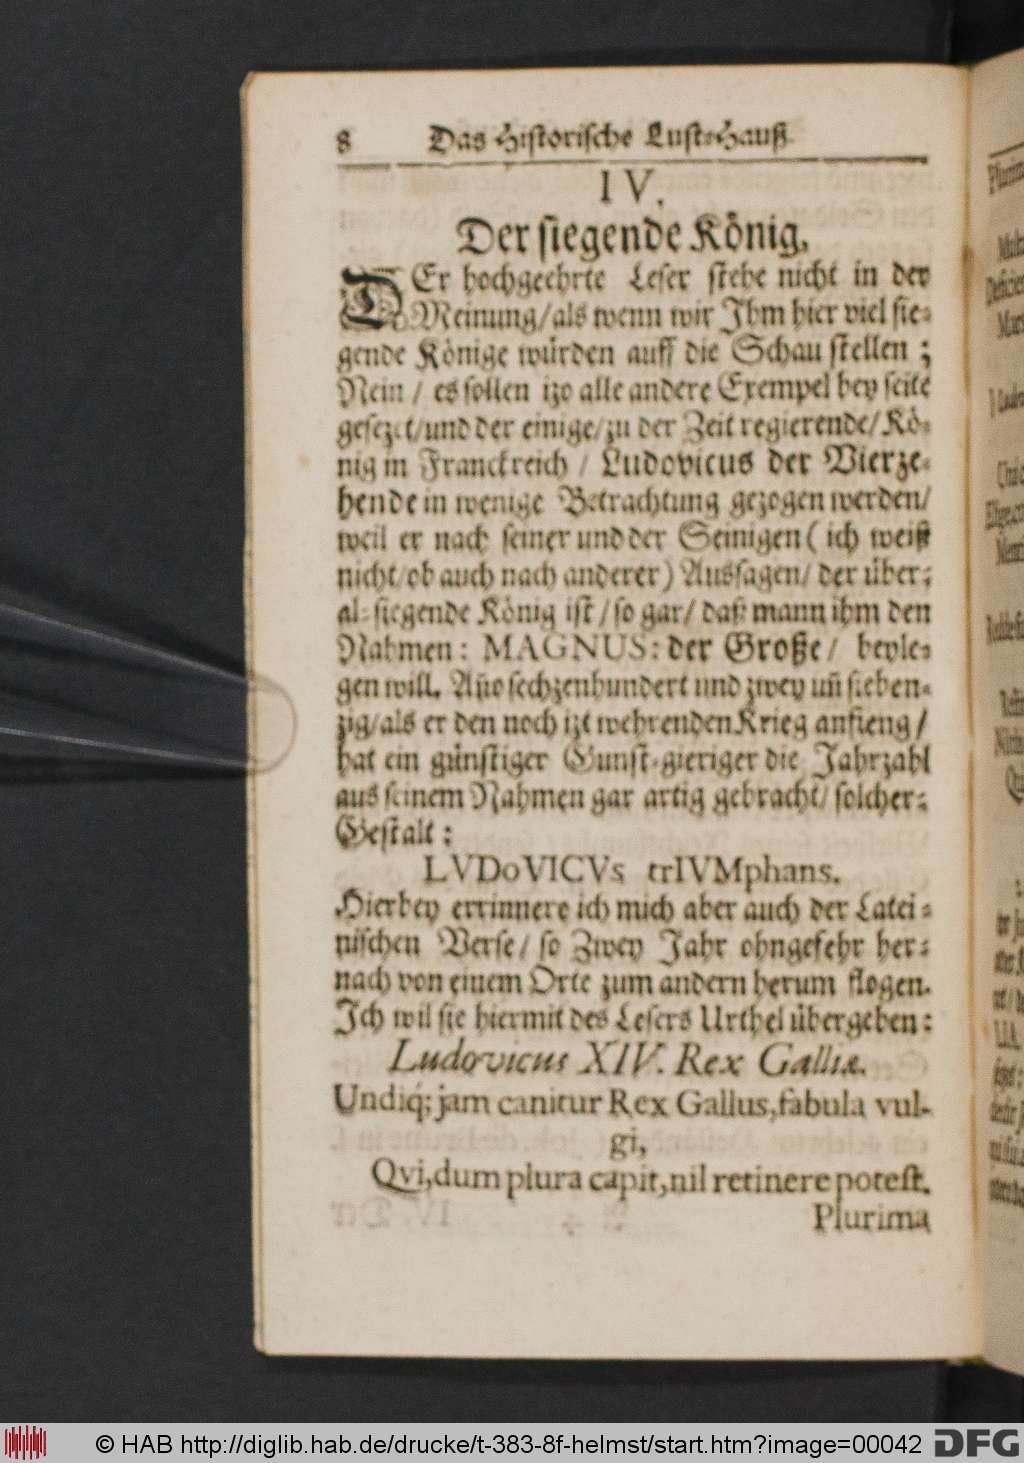 8 Das Historische Lust⸗Hauß
IV.
Der siegende König,
DEr hochgeehrte Leser stehe nicht in der
Meinung/als wenn wir Ihm hier viel sie⸗
gende Könige würden auff die Schau stellen ;
Nein / es sollen izo alle andere Exempel bey seite
gesezet/und der einige/zu der Zeit regierende/Kö⸗
nig in Franckreich / Ludovicus der Vierze⸗
hende in wenige Betrachtung gezogen werden/
weil er nach seiner und der Seinigen ( ich weiß
nicht/ob auch nach anderer) Aussagen/ der über⸗
al⸗siegende König ist/so gar/ daß mann ihm den
Nahmen: MAGNUS: der Große/ beyle⸗
gen will. Año sechzenhundert und zwey uñ sieben⸗
zig/als er den noch izt wehrenden Krieg anfieng/
hat ein günstiger Gunst⸗gieriger die Jahrzahl
aus seinem Nahmen gar artig gebracht/ solcher⸗
Gestalt:
LVDoVICVs trIVMphans.
Hierbey errinnere ich mich aber auch der Latei⸗
nischen Verse/ so Zwey Jahr ohngefehr her⸗
nach von einem Orte zum andern herum flogen.
Ich wil sie hiermit des Lesers Urthel übergeben:
Ludovicus XIV. Rex Galliæ.
Undiq́; jam canitur Rex Gallus, fabula vul-
gi,
Qvi, dum plura capit, nil retinere potest.
Plurima
© HAB http://diglib.hab.de/drucke/t-383-8f-helmst/start.htm?image=00042 DFG